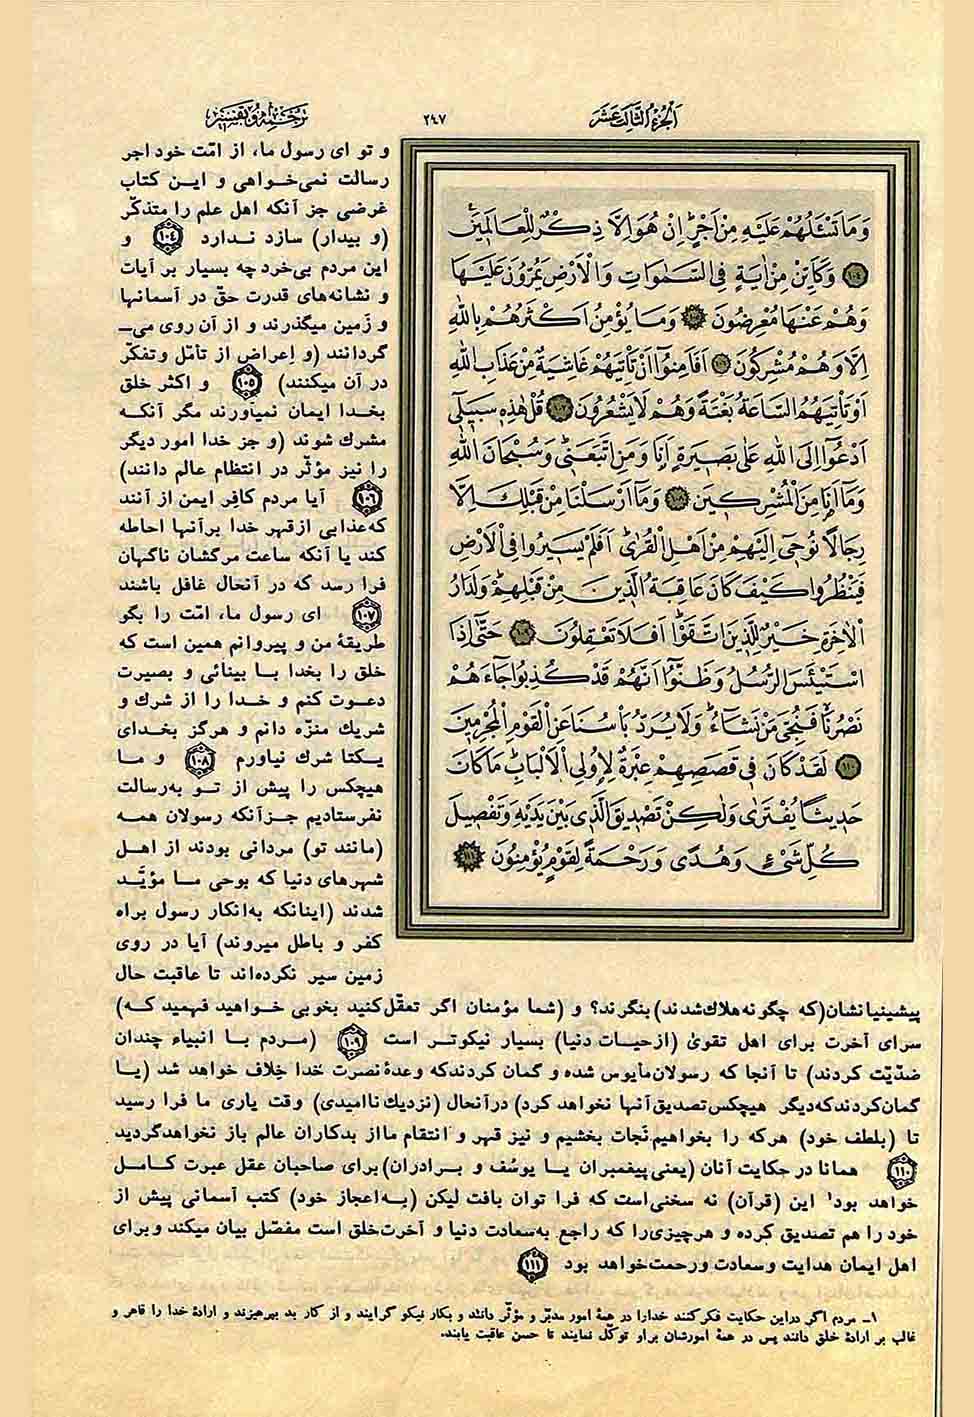 اَلْجُزْءُ الثَّالِثَ عَشَرَ
۲٤۷
ترجمه و تفسیر
وَمَا تَسْئَلُهُمْ عَلَيْهِ مِنْ اَجْرٍ اِنْ هُوَ اِلَّا ذِكْرٌ لِلْعَالَمِينَ
۱۰٤ وَكَاَيِّنْ مِنْ اٰيَةٍ فِي السَّمٰوَاتِ وَالْاَرْضِ يَمُرُّونَ عَلَيْهَا
وَهُمْ عَنْهَا مُعْرِضُونَ ۱۰۵ وَمَا يُؤْمِنُ اَكْثَرُهُمْ بِاللّٰهِ
اِلَّا وَهُمْ مُشْرِكُونَ ۱۰٦ اَفَاَمِنُوا اَنْ تَأْتِيَهُمْ غَاشِيَةٌ مِنْ عَذَابِ اللّٰهِ
اَوْ تَأْتِيَهُمُ السَّاعَةُ بَغْتَةً وَهُمْ لَا يَشْعُرُونَ ۱۰۷ قُلْ هٰذِهِ سَبِيلِي
اَدْعُوا اِلَى اللّٰهِ عَلٰى بَصِيرَةٍ اَنَا وَمَنِ اتَّبَعَنِي وَسُبْحَانَ اللّٰهِ
وَمَا اَنَا مِنَ الْمُشْرِكِينَ ۱۰۸ وَمَا اَرْسَلْنَا مِنْ قَبْلِكَ اِلَّا
رِجَالًا نُوحِي اِلَيْهِمْ مِنْ اَهْلِ الْقُرٰى اَفَلَمْ يَسِيرُوا فِي الْاَرْضِ
فَيَنْظُرُوا كَيْفَ كَانَ عَاقِبَةُ الَّذِينَ مِنْ قَبْلِهِمْ وَلَدَارُ
الْاٰخِرَةِ خَيْرٌ لِلَّذِينَ اتَّقَوْا اَفَلَا تَعْقِلُونَ ۱۰۹ حَتّٰى اِذَا
اسْتَيْئَسَ الرُّسُلُ وَظَنُّوا اَنَّهُمْ قَدْ كُذِبُوا جَاءَهُمْ
نَصْرُنَا فَنُجِّيَ مَنْ نَشَاءُ وَلَا يُرَدُّ بَأْسُنَا عَنِ الْقَوْمِ الْمُجْرِمِينَ
۱۱۰ لَقَدْ كَانَ فِي قَصَصِهِمْ عِبْرَةٌ لِاُولِي الْاَلْبَابِ مَا كَانَ
حَدِيثًا يُفْتَرٰى وَلٰكِنْ تَصْدِيقَ الَّذِي بَيْنَ يَدَيْهِ وَتَفْصِيلَ
كُلِّ شَيْءٍ وَهُدًى وَرَحْمَةً لِقَوْمٍ يُؤْمِنُونَ ۱۱۱
و تو ای رسول ما، از امّت خود اجر
رسالت نمی‌خواهی و این کتاب
غرضی جز آنکه اهل علم را متذکّر
(و بیدار) سازد ندارد ۱۰٤ و
این مردم بی‌خرد چه بسیار بر آیات
و نشانه‌های قدرت حقّ در آسمانها
و زمین میگذرند و از آن روی می‌ـ
گردانند (و اِعراض از تأمّل و تفکّر
در آن میکنند) ۱۰۵ و اکثر خلق
بخدا ایمان نمیاورند مگر آنکه
مشرك شوند (و جز خدا امور دیگر
را نیز مؤثّر در انتظام عالم دانند)
۱۰٦ آیا مردم کافِر ایمن از آنند
که عذابی از قهر خدا بر آنها احاطه
کند یا آنکه ساعت مرگشان ناگهان
فرا رسد که در آنحال غافل باشند
۱۰۷ ای رسول ما، امّت را بگو
طریقهٔ من و پیروانم همین است که
خلق را بخدا بـا بینائی و بصیرت
دعوت کنم و خدا را از شرك و
شریك منزّه دانم و هرگز بخدای
یـکتا شرك نیاورم ۱۰۸ و مـا
هیچکس را پیش از تـو به‌رسالت
نفرستادیم جز آنکه رسولان همه
(مانند تو) مردانی بودند از اهـل
شهرهای دنیا که بوحی مـا مؤیّـد
شدند (اینانکه به‌انکار رسول براه
کفر و باطل میروند) آیا در روی
زمین سیر نکرده‌اند تا عاقبت حال
پیشینیانشان(که چگونه هلاك شدند) بنگرند؟ و (شما مؤمنان اگر تعقّل کنید بخوبی خـواهید فهمید کـه)
سرای آخرت برای اهل تقویٰ (از حیـات دنیا) بسیار نیکوتـر است ۱۰۹ (مـردم بـا انبیاء چندان
ضدّیّت کردند) تا آنجا که رسولان مأیوس شده و گمان کردند که وعدهٔ نصرت خدا خِلاف خواهد شد (یـا
گمان کردند که دیگر هیچکس تصدیق آنها نخواهد کرد) در آنحال (نزدیك ناامیدی) وقت یاری ما فرا رسید
تا (بلطف خود) هر که را بخواهیم نجات بخشیم و نیز قهر و انتقام ما از بدکاران عالم باز نخواهد گردید
۱۱۰ همانا در حکایت آنان (یعنی پیغمبران یـا یوسُف و بـرادران) برای صاحبان عقل عبرت کـامـل
خواهد بود۱ این (قرآن) نه سخنی است که فرا توان بافت لیکن (بـه‌اعجاز خود) کتب آسمانی پیش از
خود را هم تصدیق کرده و هر چیزی را که راجع به‌سعادت دنیا و آخرت خلق است مفصّل بیان میکند و برای
اهل ایمان هدایت و سعادت و رحمت خواهد بود ۱۱۱
۱ـ مردم اگر در این حکایت فکر کنند خدا را در همهٔ امور مدبّر و مؤثّر دانند و بکار نیکو گرایند و از کار بد بپرهیزند و ارادهٔ خدا را قاهر و
غالب بر ارادهٔ خلق دانند پس در همهٔ امورشان بر او توکّل نمایند تا حسن عاقبت یابند.